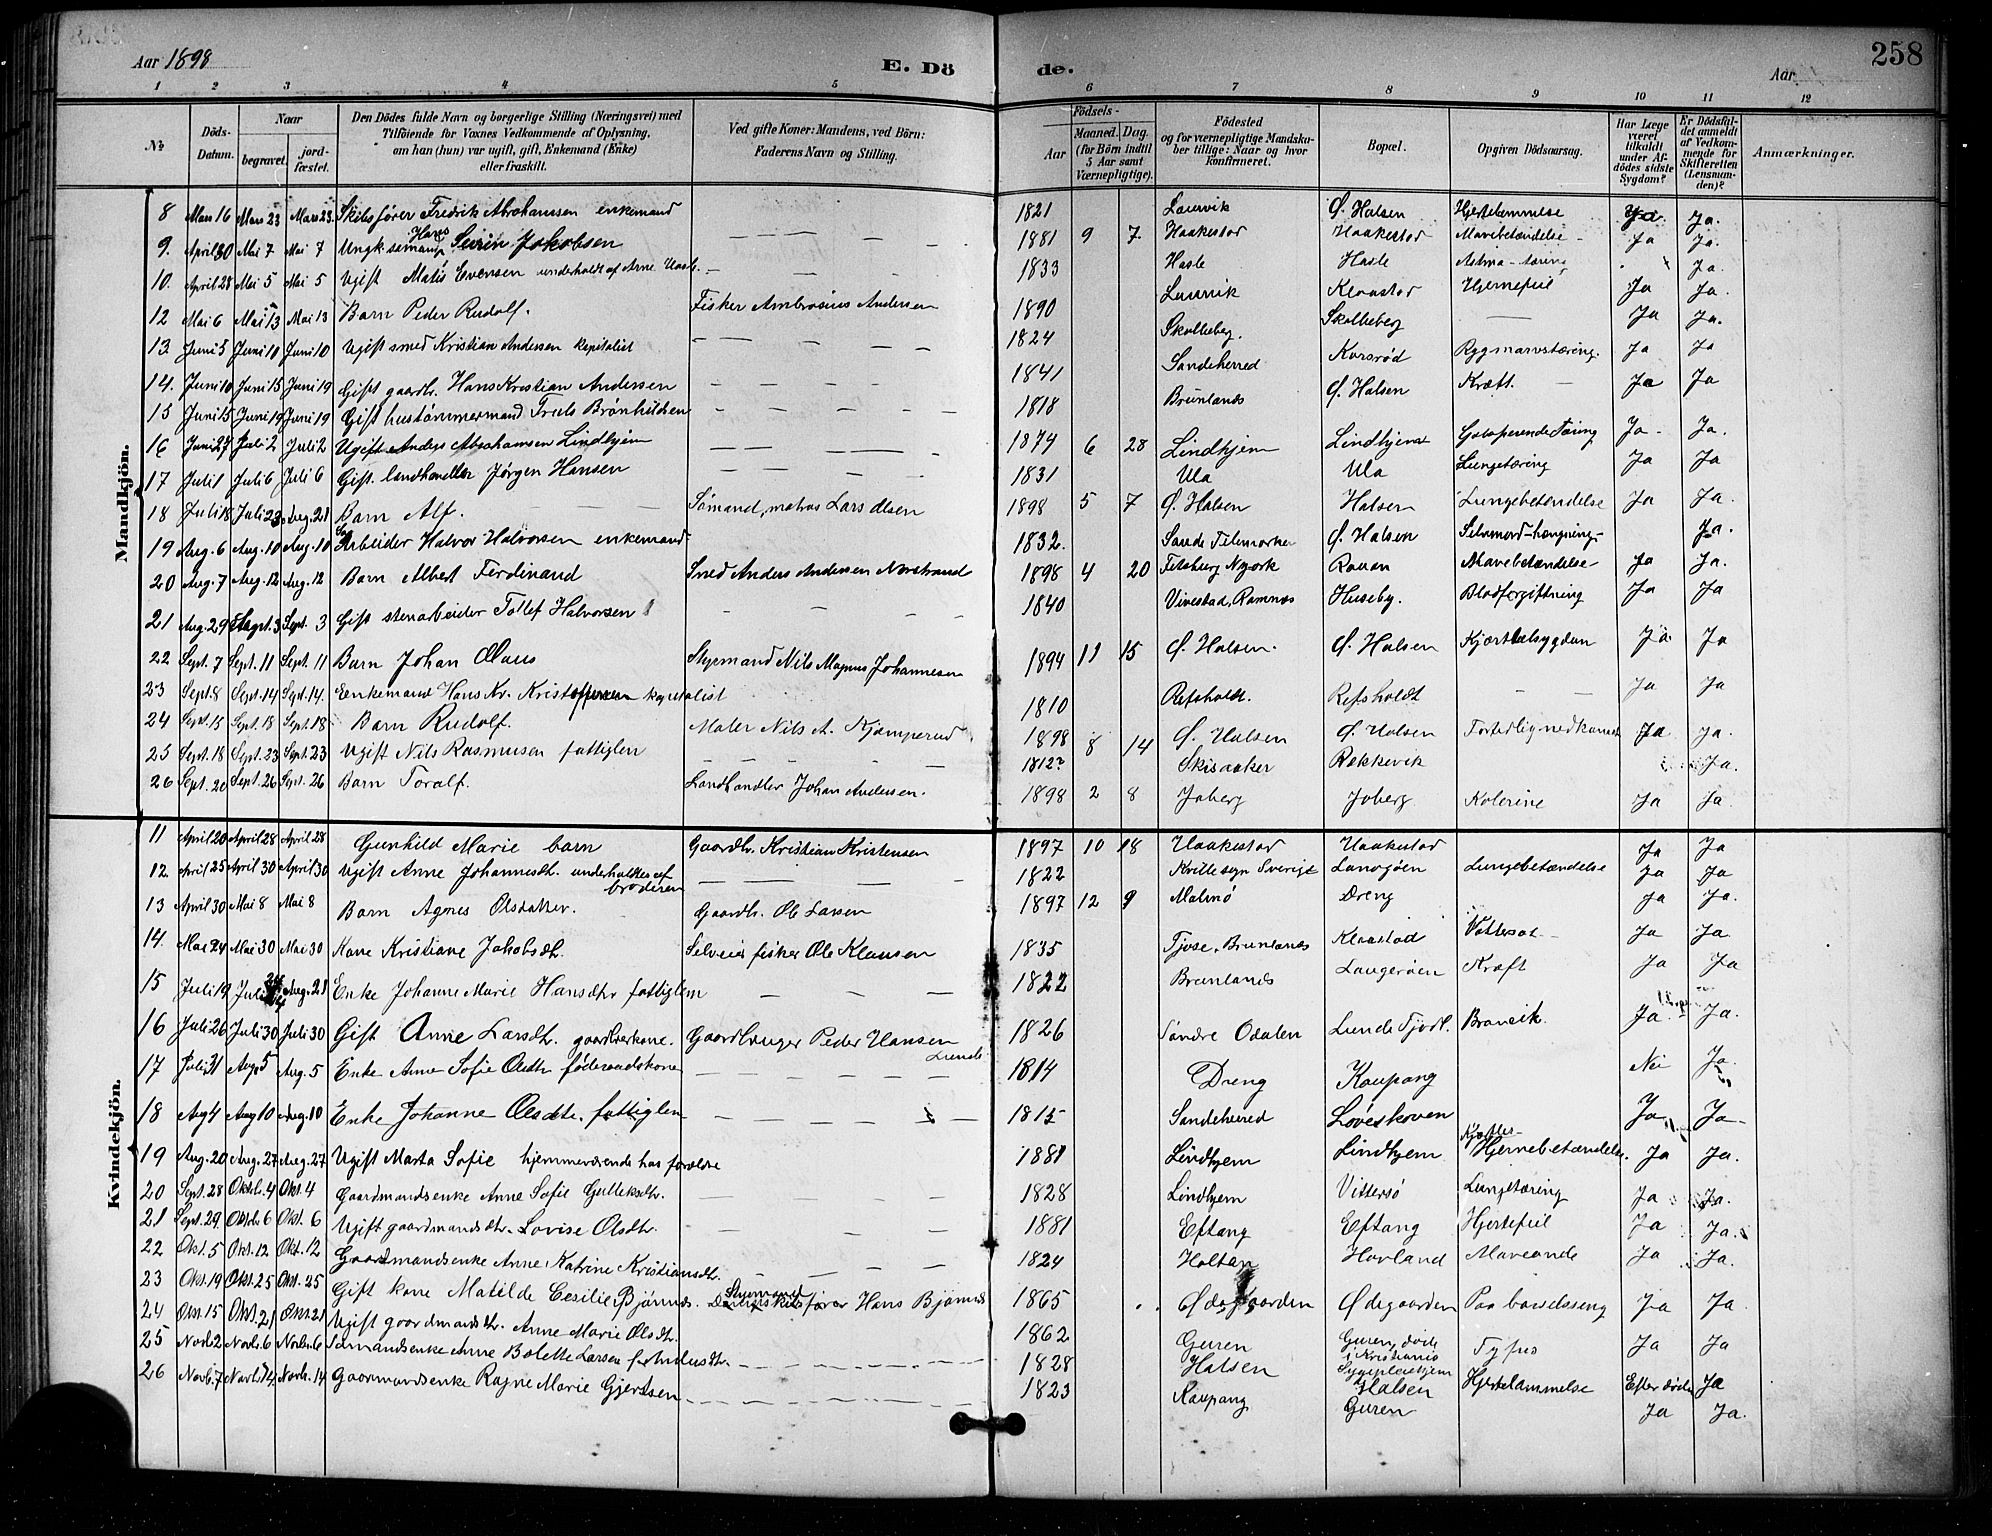 Aar 1898
E. Dö
de.
Aar
258
1 2 3 4 5 6 7 8 9 10 11 12
№
Döds-Datum.
Naar
begravet.
jordfæstet.
Den Dödes fulde Navn og borgerlige Stilling (Næringsvei) med Tilföiende for Voxnes Vedkommende af Oplysning, om han (hun) var ugift, gift, Enkemand (Enke) eller fraskilt.
Ved gifte Koner: Mandens, ved Börn: Faderens Navn og Stilling.
Födsels-
Aar
Maaned. Dag.
(for Börn indtil 5 Aar samt Værnepligtige).
Födested og for værnepligtige Mandskaber tillige: Naar og hvor konfirmeret.
Bopæl.
Opgiven Dödsaarsag.
Har Læge været tilkaldt under Afdödes sidste Sygdom?
Er Dödsfaldet anmeldt af Vedkommende for Skifteretten (Lensmanden)?
Anmærkninger.
Mandkjön.
8 Mars 16 Mars 23 Mars 23 Skibsfører Fredrik Abrahamsen enkemand 1821 Laurvik Ø. Halsen Hjertelammelse Ja Ja.
9. April 30 Mai 7 Mai 7 Ungk. sømand Hans Severin Jakobsen 1881 9 7. Haakestad Haakestad Mavebetændelse Ja Ja.
10. April 28 Mai 5 Mai 5 Ugift Matis Evensen underholdt af Arne Hasle 1833 Hasle Hasle Astma-tæring Ja.
12 Mai 6 Mai 13 Mai 13 Barn Peder Rudolf. Fisker Ambrosius Andersen 1890 Laurvik Klaastad Hjernefeil Ja Ja.
13. Juni 5 Juni 11 Juni 10 Ugift smed Kristian Andersen kapitalist 1824 Skalleberg. Skalleberg Ja Ja.
14. Juni 10 Juni 15 Juni 19 Gift gaardbr. Hans Kristian Andersen 1841 Sandeherred Korsrød Rygmarvstæring. Ja Ja
15 Juni 15 Juni 19 Juni 19 Gift hustømmermand Truls Brønhildsen 1818 Brunlanes Ø. Halsen Kræft. Ja Ja
16 Juni 27 Juli 2 Juli 2 Ugift Anders Abrahamsen Lindhjem 1874 6 28 Lindhjem Lindhjem Galoperende Tæring Ja Ja.
17 Juli 1 Juli 6 Juli 6 Gift. landhandler Jørgen Hansen 1831 Ula Ula Lungetæring Ja Ja
18 Juli 18 Juli 23 Aug. 21 Barn Alf. Sømand, matros Lars Olsen 1898 5 7 Ø. Halsen Halsen Lungebetændelse Ja Ja.
19 Aug. 6 Aug. 10 Aug. 10 Arbeider Halvor Halvorsen enkemand 1832. Saude Telemarken Ø. Halsen Selvmord-hængning Ja.
20 Aug. 7 Aug. 12 Aug. 12 Barn Albert Ferdinand Smed Anders Andersen Norstrand 1898 4 20 Nyork Rauan Mavebetændelse Ja Ja.
21 Aug. 29 Sept. 3 Sept. 3 Gift stenarbeider Tollef Halvorsen 1840 Vivestad, Ramnes Huseby. Blodforgiftning Ja Ja
22 Sept. 7 Sept. 11 Sept. 11 Barn Johan Olaus Styrmand Nils Magnus Johannesen 1894 11 15 Ø. Halsen. Ø. Halsen Kjærtelsygdom Ja Ja
23 Sept. 8 Sept. 14 Sept. 14. Enkemand Hans Kr. Kristoffersen kapitalist 1810 Refsholdt. Refsholdt Ja Ja
24 Sept. 15 Sept. 18 Sept. 18 Barn Rudolf. Maler Nils A. Kjæmperud 1898 8 14 Ø. Halsen Ø. Halsen Fortidlig nedkomst Ja Ja.
25 Sept. 18 Sept. 23 Sept. 23 Ugift Nils Rasmusen fattiglem 1812? Skisaaker Rekkevik Ja.
26 Sept. 20 Sept. 26 Sept. 26 Barn Toralf. Landhandler Johan Andersen. 1898 2 8 Joberg Joberg Kolerine Ja Ja.
Kvindekjön.
11 April 20 April 28 April 28 Gunhild Marie barn Gaardbr. Kristian Kristensen 1897 10 18 Haakestad Haakestad Ja Ja
12. April 25 April 30 April 30 Ugift Anne Johannesdtr. underholdtes af broderen 1822 Sverige Langøen Lungebetændelse Ja Ja
13 April 30 Mai 8 Mai 8 Barn Agnes Olsdatter. Gaardbr. Ole Larsen 1897 12 9 Malmø Dreng Ja Ja.
14. Mai 24 Mai 30 Mai 30 Kone Kristiane Jakobsdtr. Selveier fisker Ole Klausen 1835 Tjose, Brunlanes Klaastad Vattersot Ja Ja
15 Juli 19 Juli 24 Aug. 21 Enke Johanne Marie Hansdtr fattiglem 1822 Brunlanes Langøen Kræft Ja Ja
16 Juli 26 Juli 30 Juli 30 Gift Anne Larsdtr. gaardbrkone. Gaardbruger Peder Hansen Lunde 1826 Søndre Odalen Lunde Tjøl. Ja Ja.
17 Juli 31 Aug. 5 Aug. 5 Enke Anne Sofie Olsdtr føderaadskone 1814 Dreng Kaupang Nei Ja
18 Aug 4 Aug 10 Aug. 10 Enke Johanne Olsdtr. fattiglem 1815 Sandeherred Løveskoven Ja Ja
19 Aug. 20 Aug. 27 Aug. 27 Ugift Marta Sofie hjemmeværende hos forældre 1881 Lindhjem Lindhjem Hjernebetændelse Ja Ja.
20 Sept. 28 Oktb. 4 Okt. 4 Gaardmandsenke Anne Sofie Gulleksdtr. 1828 Lindhjem Vittersø Lungetæring Ja Ja.
21 Sept. 29. Oktb. 6 Okt. 6 Ugift gaardmandsdtr. Lovise Olsdtr. 1881 Eftang Eftang Hjertefeil Ja Ja.
22 Okt. 5 Okt. 12 Okt. 12 Gaardmandsenke Anne Katrine Kristiansdtr. 1824 Holtan Hovland Maveonde Ja Ja.
23 Okt. 19 Okt. 25 Okt. 25 Gift kone Matilde Cesilie Bjønnes. Styrmand Hans Bjønnes 1865 Ødegaarden Ødegaarden Paa barselsseng Ja Ja.
24 Okt. 15 Okt. 21 Okt. 21 Ugift gaardmandsdtr. Anne Marie Olsdtr. 1862 Guren Guren, døde i Kristiania Sygepleiehjem Tyfus Ja Ja
25 Novb. 2 Novb. 6 Novb. 6 Sømandsenke Anne Bolette Larsen 1828 Halsen Halsen Hjertelammelse Efter døden Ja
26 Novb. 7 Novb. 14. Novb. 14 Gaardmandsenke Ragne Marie Gjertsen 1823 Kaupang Guren Ja Ja.